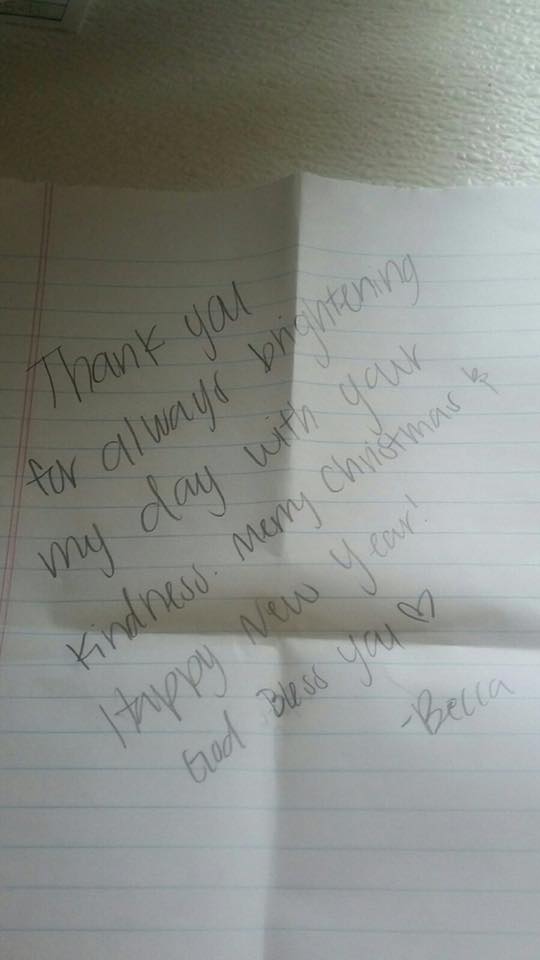 Thank you
for always brightening
my day with your
kindness. Merry Christmas &
Happy New Year!
God Bless You ♡
-Becca